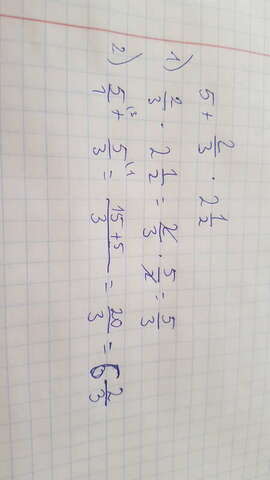 5 + 2/3 · 2 1/2
1) 2/3 · 2 1/2 = 2/3 · 5/2 = 5/3
2) 5/1 + 5/3 = (15+5)/3 = 20/3 = 6 2/3